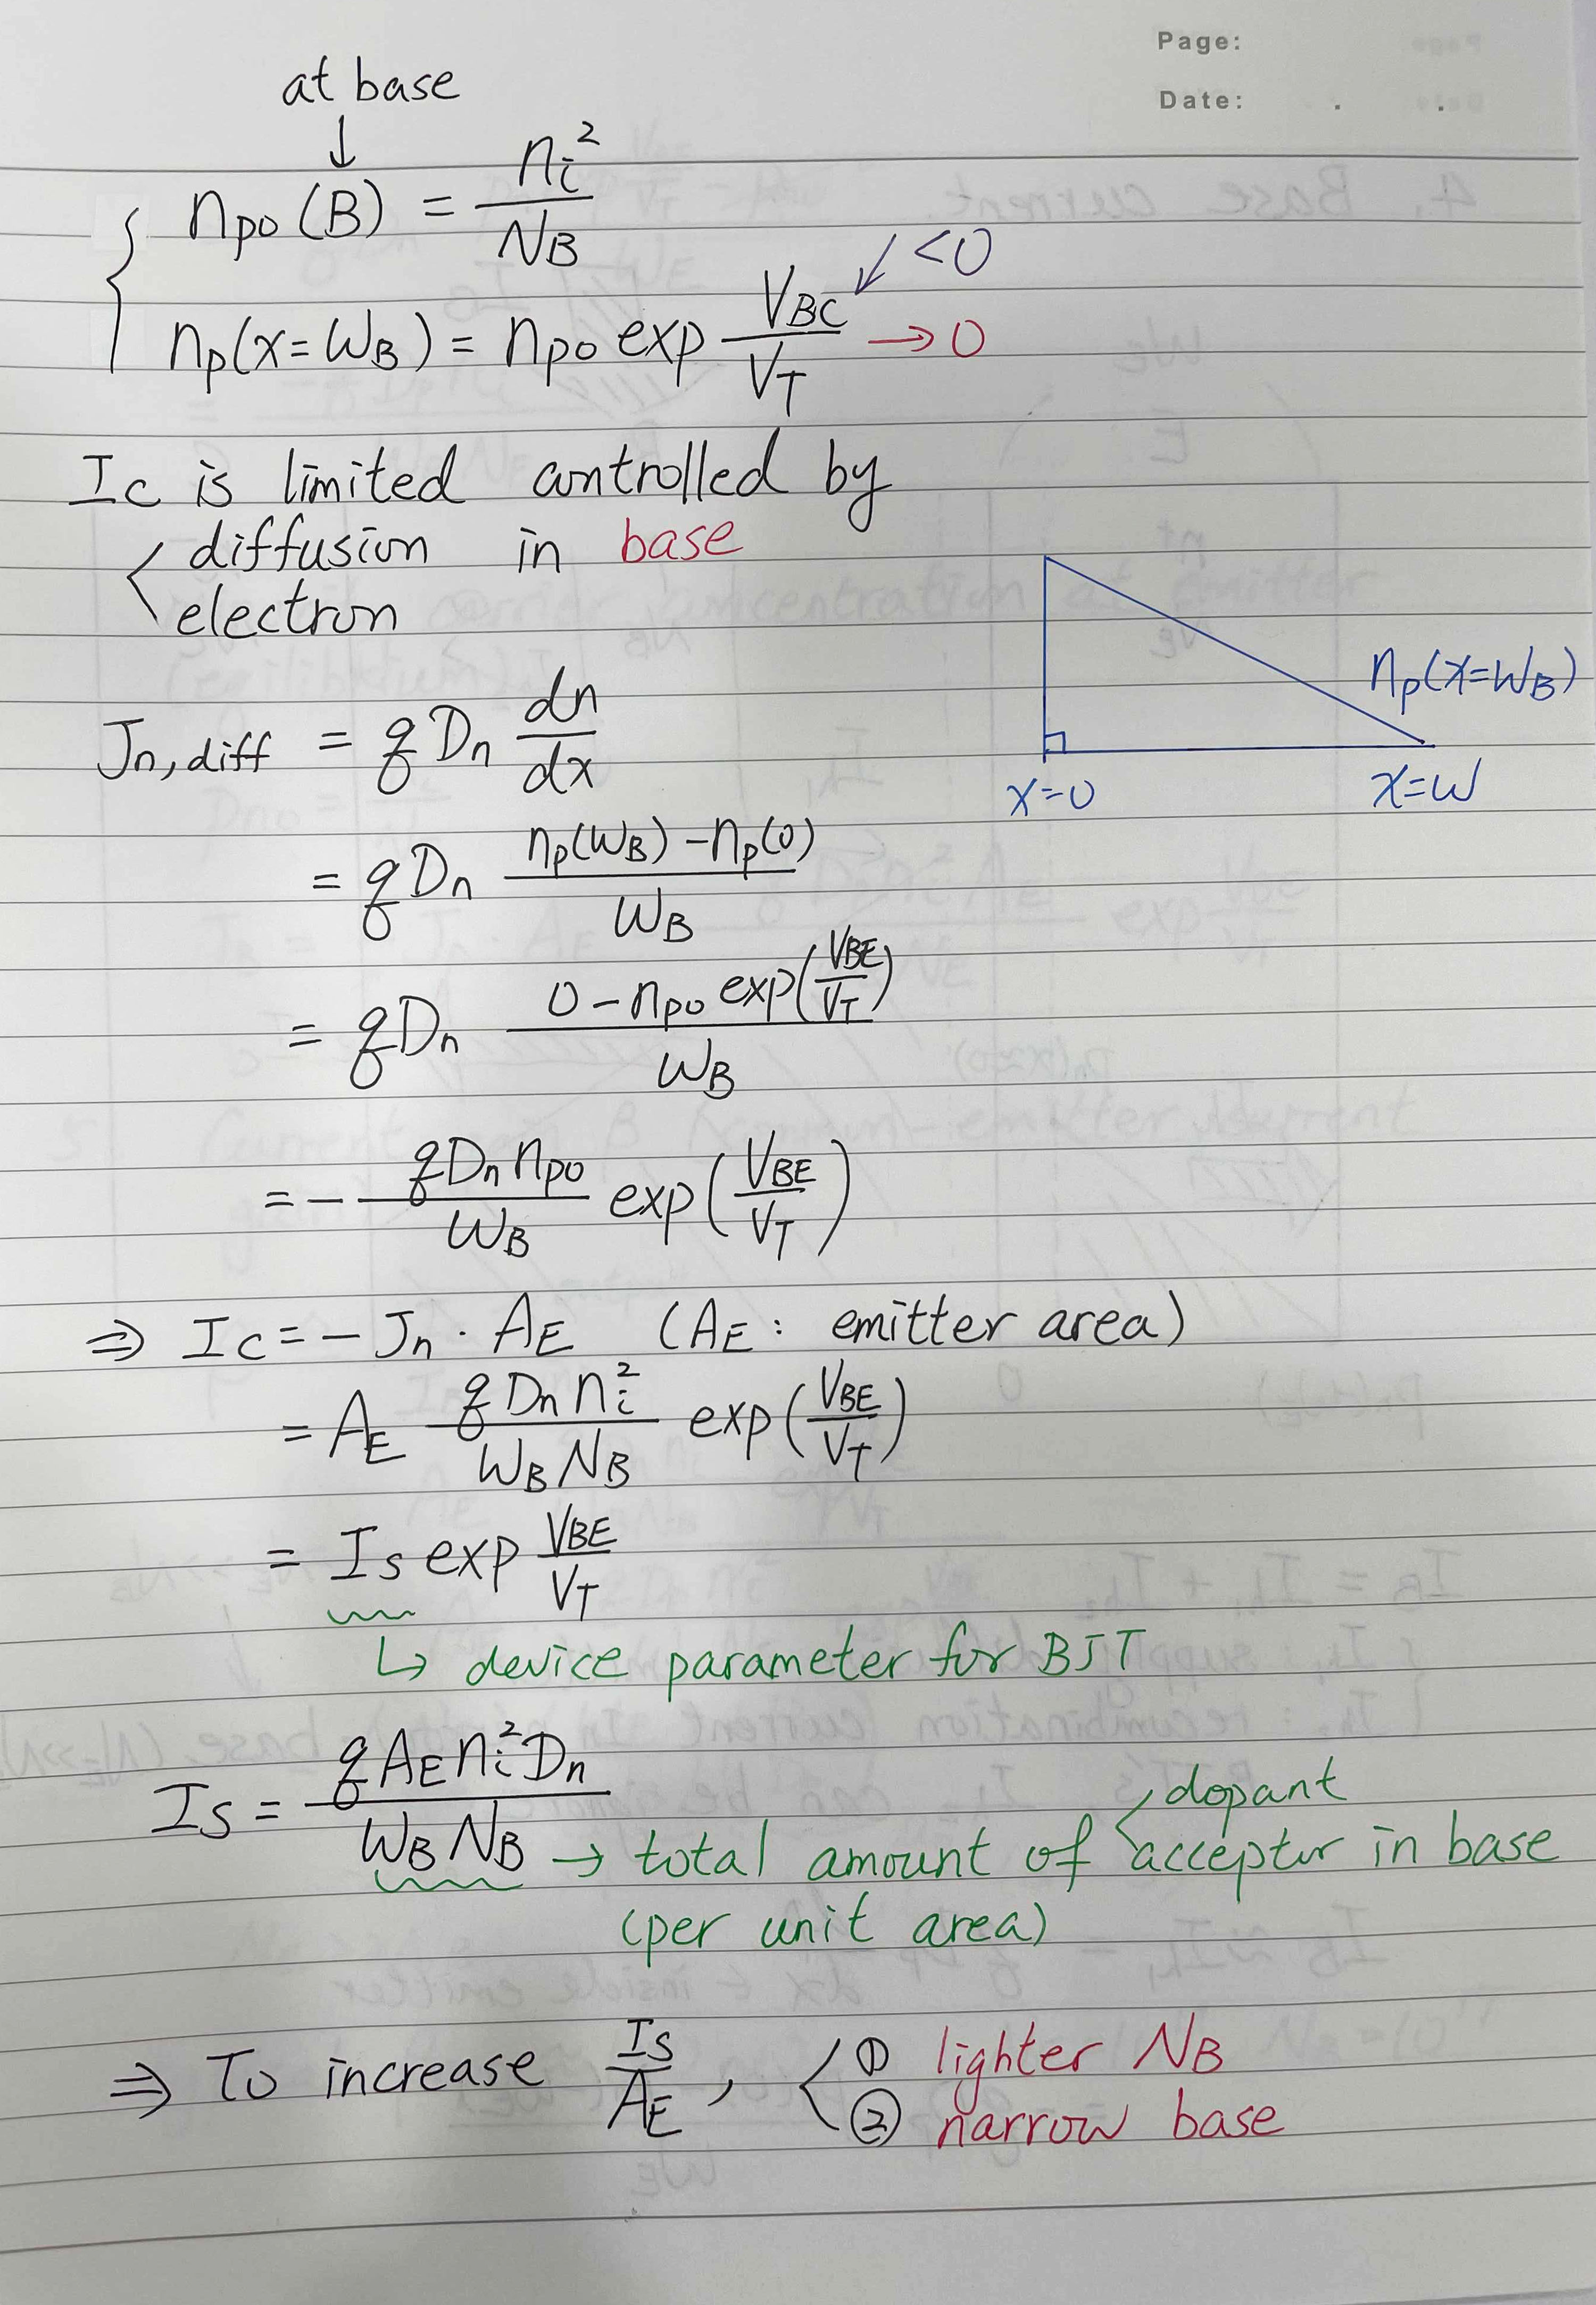 Page:
Date: . .
at base
↓
npo(B) = ni² / NB
np(x=WB) = npo exp VBC / VT → 0
↙ <0
Ic is limited controlled by
diffusion in base
electron
Jn,diff = qDn dn/dx
np(x=WB)
x=0 x=W
= qDn (np(WB) - np(0)) / WB
= qDn (0 - npo exp(VBE/VT)) / WB
= - qDn npo / WB exp(VBE/VT)
⇒ Ic = - Jn · AE (AE: emitter area)
= AE qDn ni² / WB NB exp(VBE/VT)
= Is exp VBE/VT
↳ device parameter for BJT
Is = qAE ni² Dn / WB NB → total amount of dopant acceptor in base
(per unit area)
⇒ To increase Is/AE, ① lighter NB
② narrow base